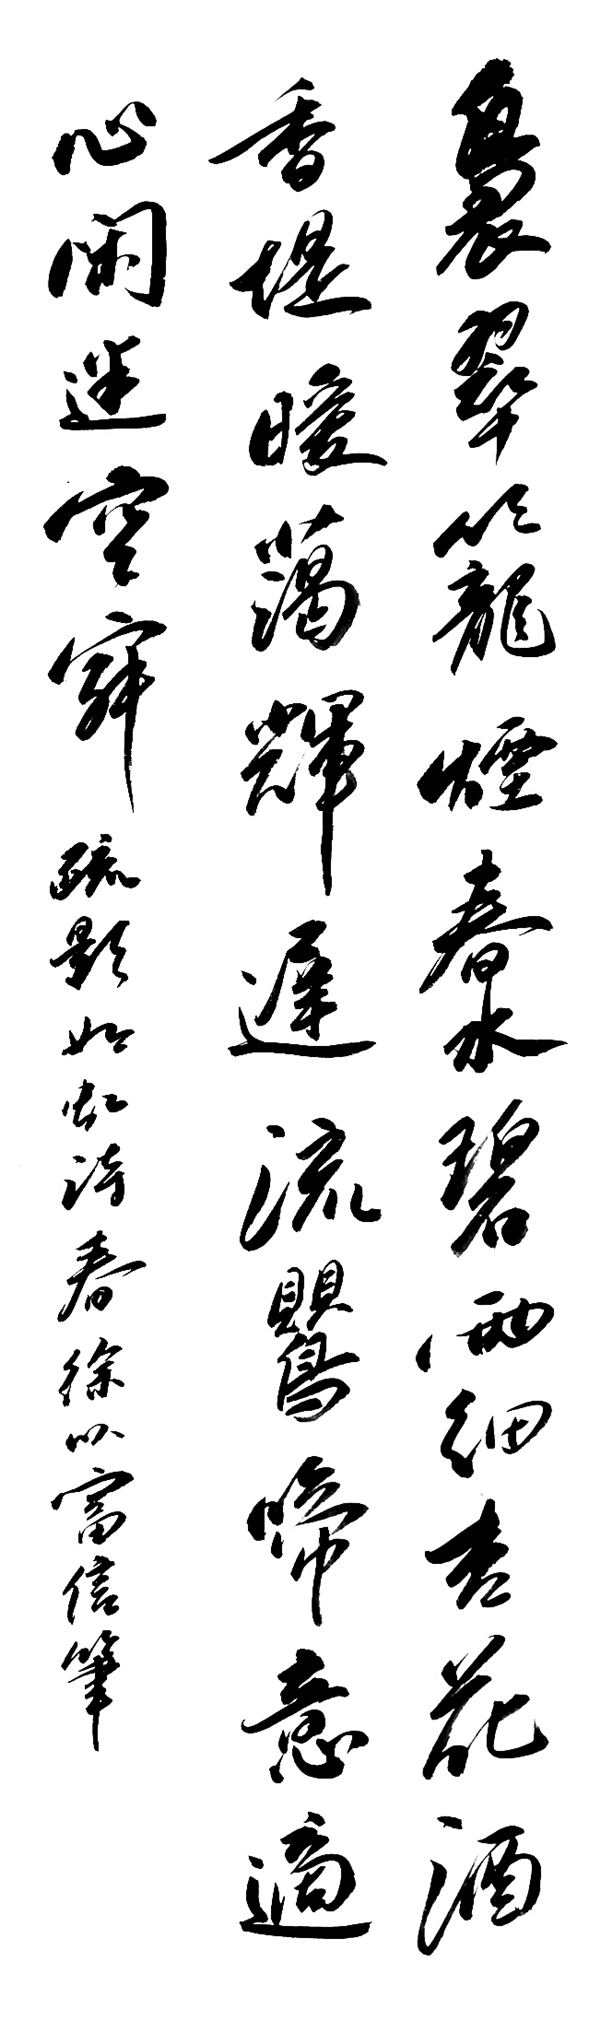 裊翠籠煙春水碧雨細杏花酒
香堤暖蕩輝遲流鶯啼意適
心閑迷空寂疏影如虹詩春徐以富信筆